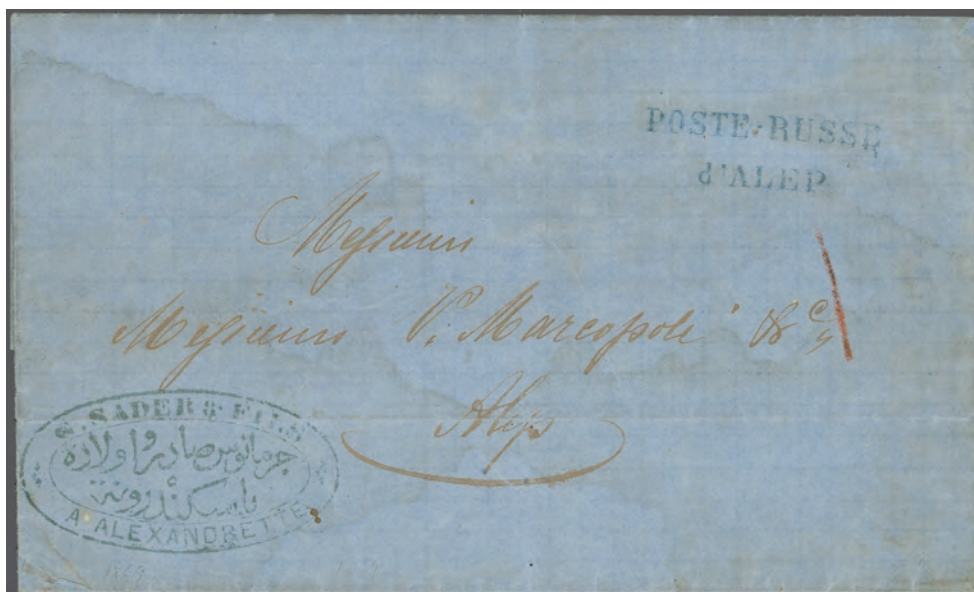 POSTE·RUSSE
d'ALEP
Messieurs
Messieurs V. Marcopoli & C.
Alep
S. SADER & FILS
جرمانوس صادر واولاده
باسكندرونة
A ALEXANDRETTE
1869